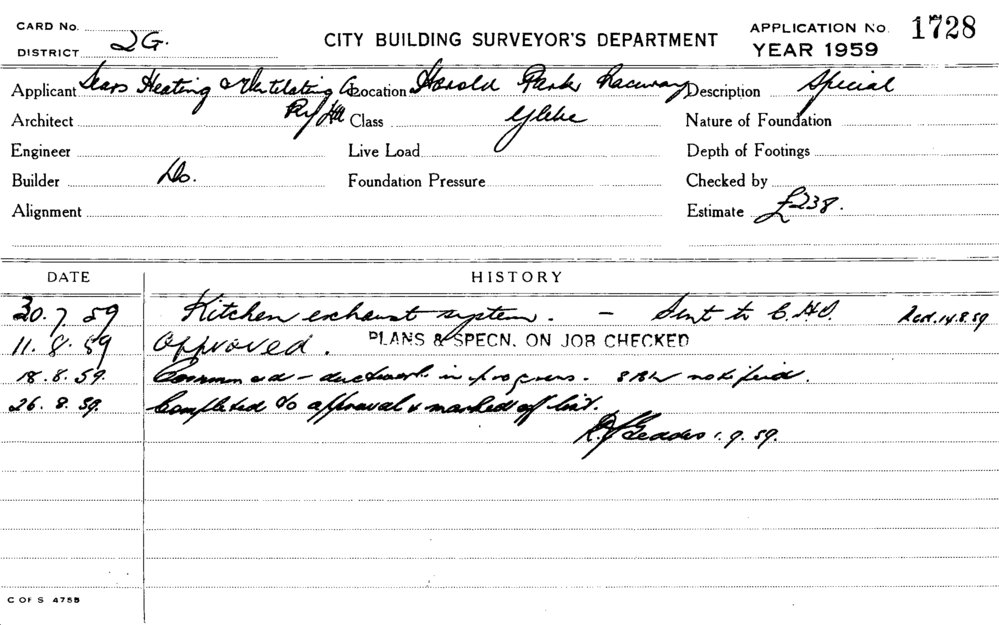 CARD No.
DISTRICT 2G.
CITY BUILDING SURVEYOR'S DEPARTMENT
APPLICATION No. 1728
YEAR 1959
Applicant Sears Heating & Ventilating Co Location Harold Park Raceway Description Special
Architect Pty Ltd Class Glebe Nature of Foundation
Engineer Live Load Depth of Footings
Builder Do. Foundation Pressure Checked by
Alignment Estimate £238.
DATE HISTORY
30.7.59 Kitchen exhaust system. - Sent to C.H.O. Rcd. 14.8.59
11.8.59 Approved. PLANS & SPECN. ON JOB CHECKED
18.8.59. Commenced - ductwork in progress. notified.
26.8.59. Completed to approval & marked off list.
Geddes 1.9.59.
C OF S 4755